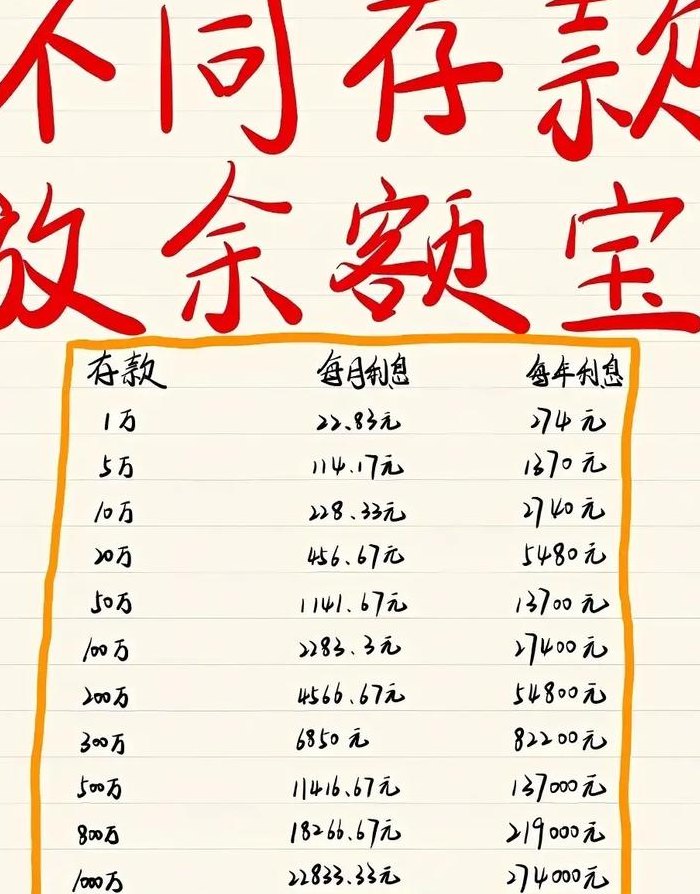 不同存款
放余额宝
存款 每月利息 每年利息
1万 22.83元 274元
5万 114.17元 1370元
10万 228.33元 2740元
20万 456.67元 5480元
50万 1141.67元 13700元
100万 2283.3元 27400元
200万 4566.67元 54800元
300万 6850元 82200元
500万 11416.67元 137000元
800万 18266.67元 219000元
1000万 22833.33元 274000元